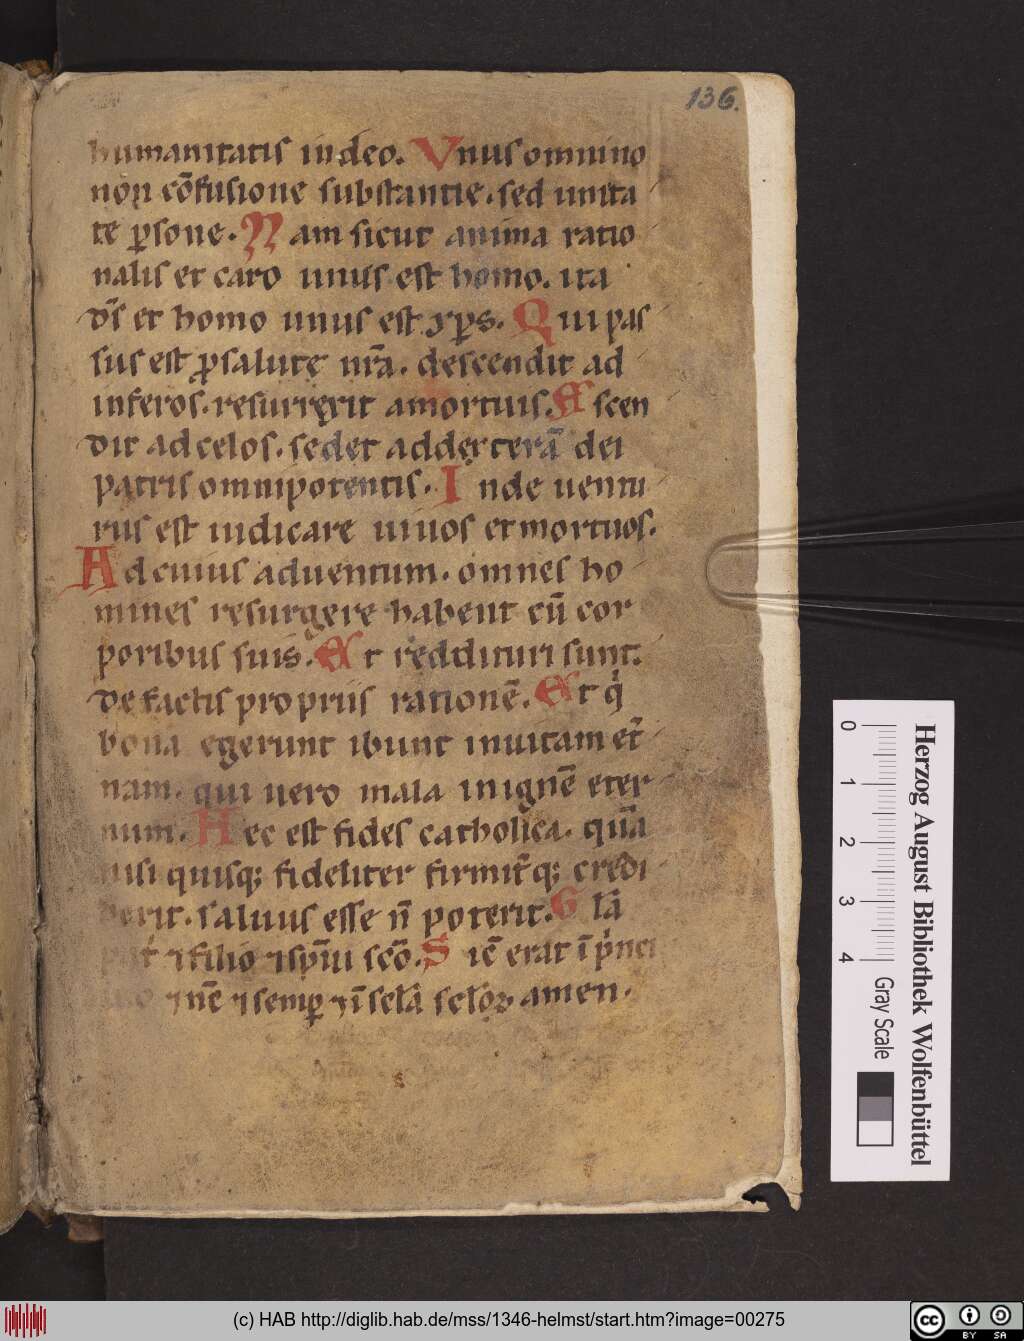 136.
humanitatis in deo. Vnus omnino
non cōfusione substantie. sed unita
te ꝑsone. Nam sicut anima ratio
nalis et caro unus est homo. ita
ds̄ et homo unus est xp̄s. Qui pas
sus est ꝓ salute nr̄a. descendit ad
inferos. resurrexit a mortuis. Ascen
dit ad celos. sedet ad dexterā dei
patris omnipotentis. Inde uentu
rus est iudicare uiuos et mortuos.
Ad cuius aduentum. omnes ho
mines resurgere habent cū cor
poribus suis. Et reddituri sunt.
de factis propriis rationē. Et qͥ
bona egerunt ibunt in uitam et̄
nam. qui uero mala in ignē eter
num. Hec est fides catholica. quā
nisi quisq; fideliter firmit̄q; credi
derit. saluus esse n̄ poterit. Glā
⁊ filio ⁊ spūi scō. Sic̄ erat ī pͥnci
⁊ nc̄ ⁊ semꝑ ⁊ ī sclā sclōꝝ amen.
Herzog August Bibliothek Wolfenbüttel
0 1 2 3 4 Gray Scale
(c) HAB http://diglib.hab.de/mss/1346-helmst/start.htm?image=00275
cc BY SA